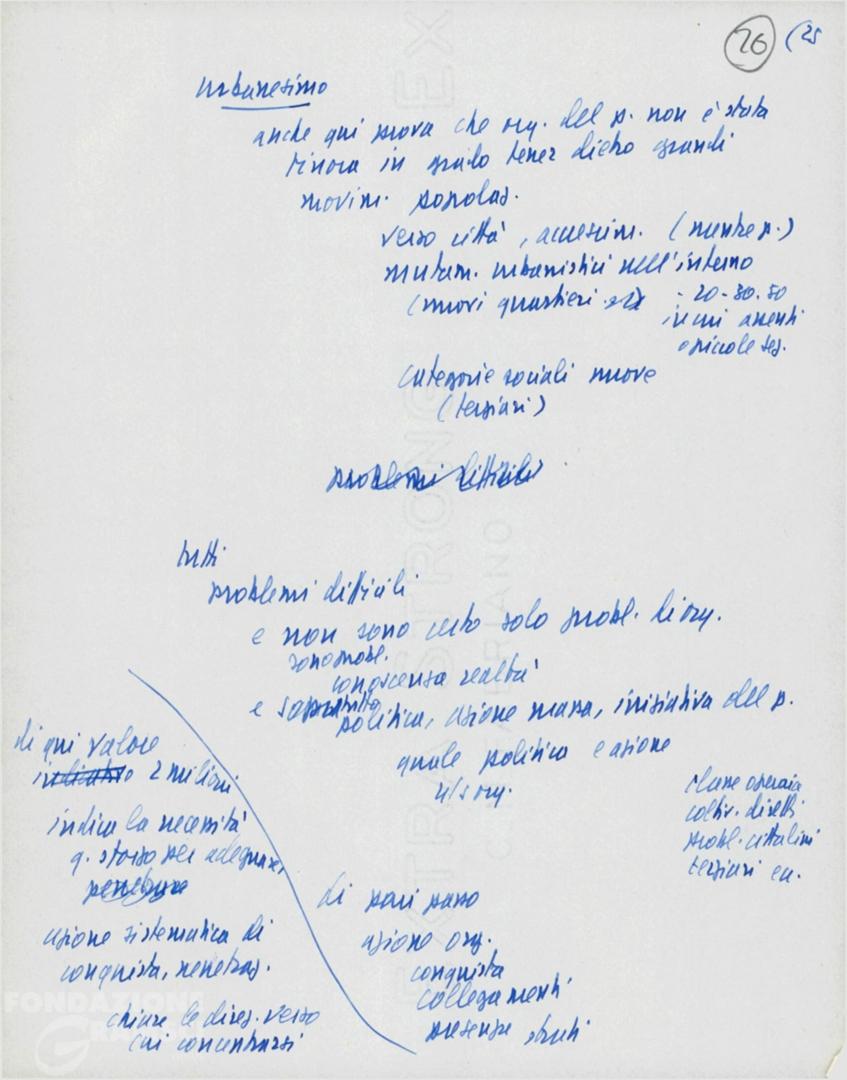 26 (25
urbanesimo
anche qui prova che org. del p. non è stata
finora in grado tener dietro grandi
movim. popolar.
verso città, accrescim. (mentre p.)
mutam. urbanistici nell'interno
(nuovi quartieri - 20-30.50
in cui assenti
o piccole sez.
categorie sociali nuove
(terziari)
problemi difficili
tutti
problemi difficili
e non sono certo solo probl. di org.
sono probl.
conoscenza realtà
e soprattutto
politica, azione massa, iniziativa del p.
quale politica e azione
u/s org.
classe operaia
coltiv. diretti
probl. cittadini
terziari ecc.
di qui valore
indicativo 2 milioni
indica la necessità
q. sforzo per adeguarsi
penetrare
azione sistematica di
conquista, penetraz.
chiare le direz. verso
cui concentrarsi
di pari passo
azione org.
conquista
collegamenti
presenza strati
EXTRA STRONG
FABRIANO
FONDAZIONE
GRAMSCI